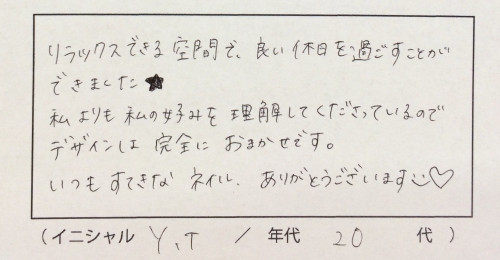 リラックスできる空間で、良い休日を過ごすことが
できました★
私よりも私の好みを理解してくださっているので
デザインは完全におまかせです。
いつもすてきなネイル、ありがとうございます☺♡
(イニシャル Y.T / 年代 20 代 )